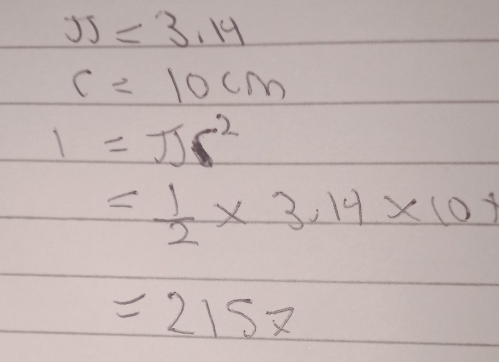 π = 3.14
r = 10 cm
1 = πr²
= 1/2 × 3.14 × 10
= 2157